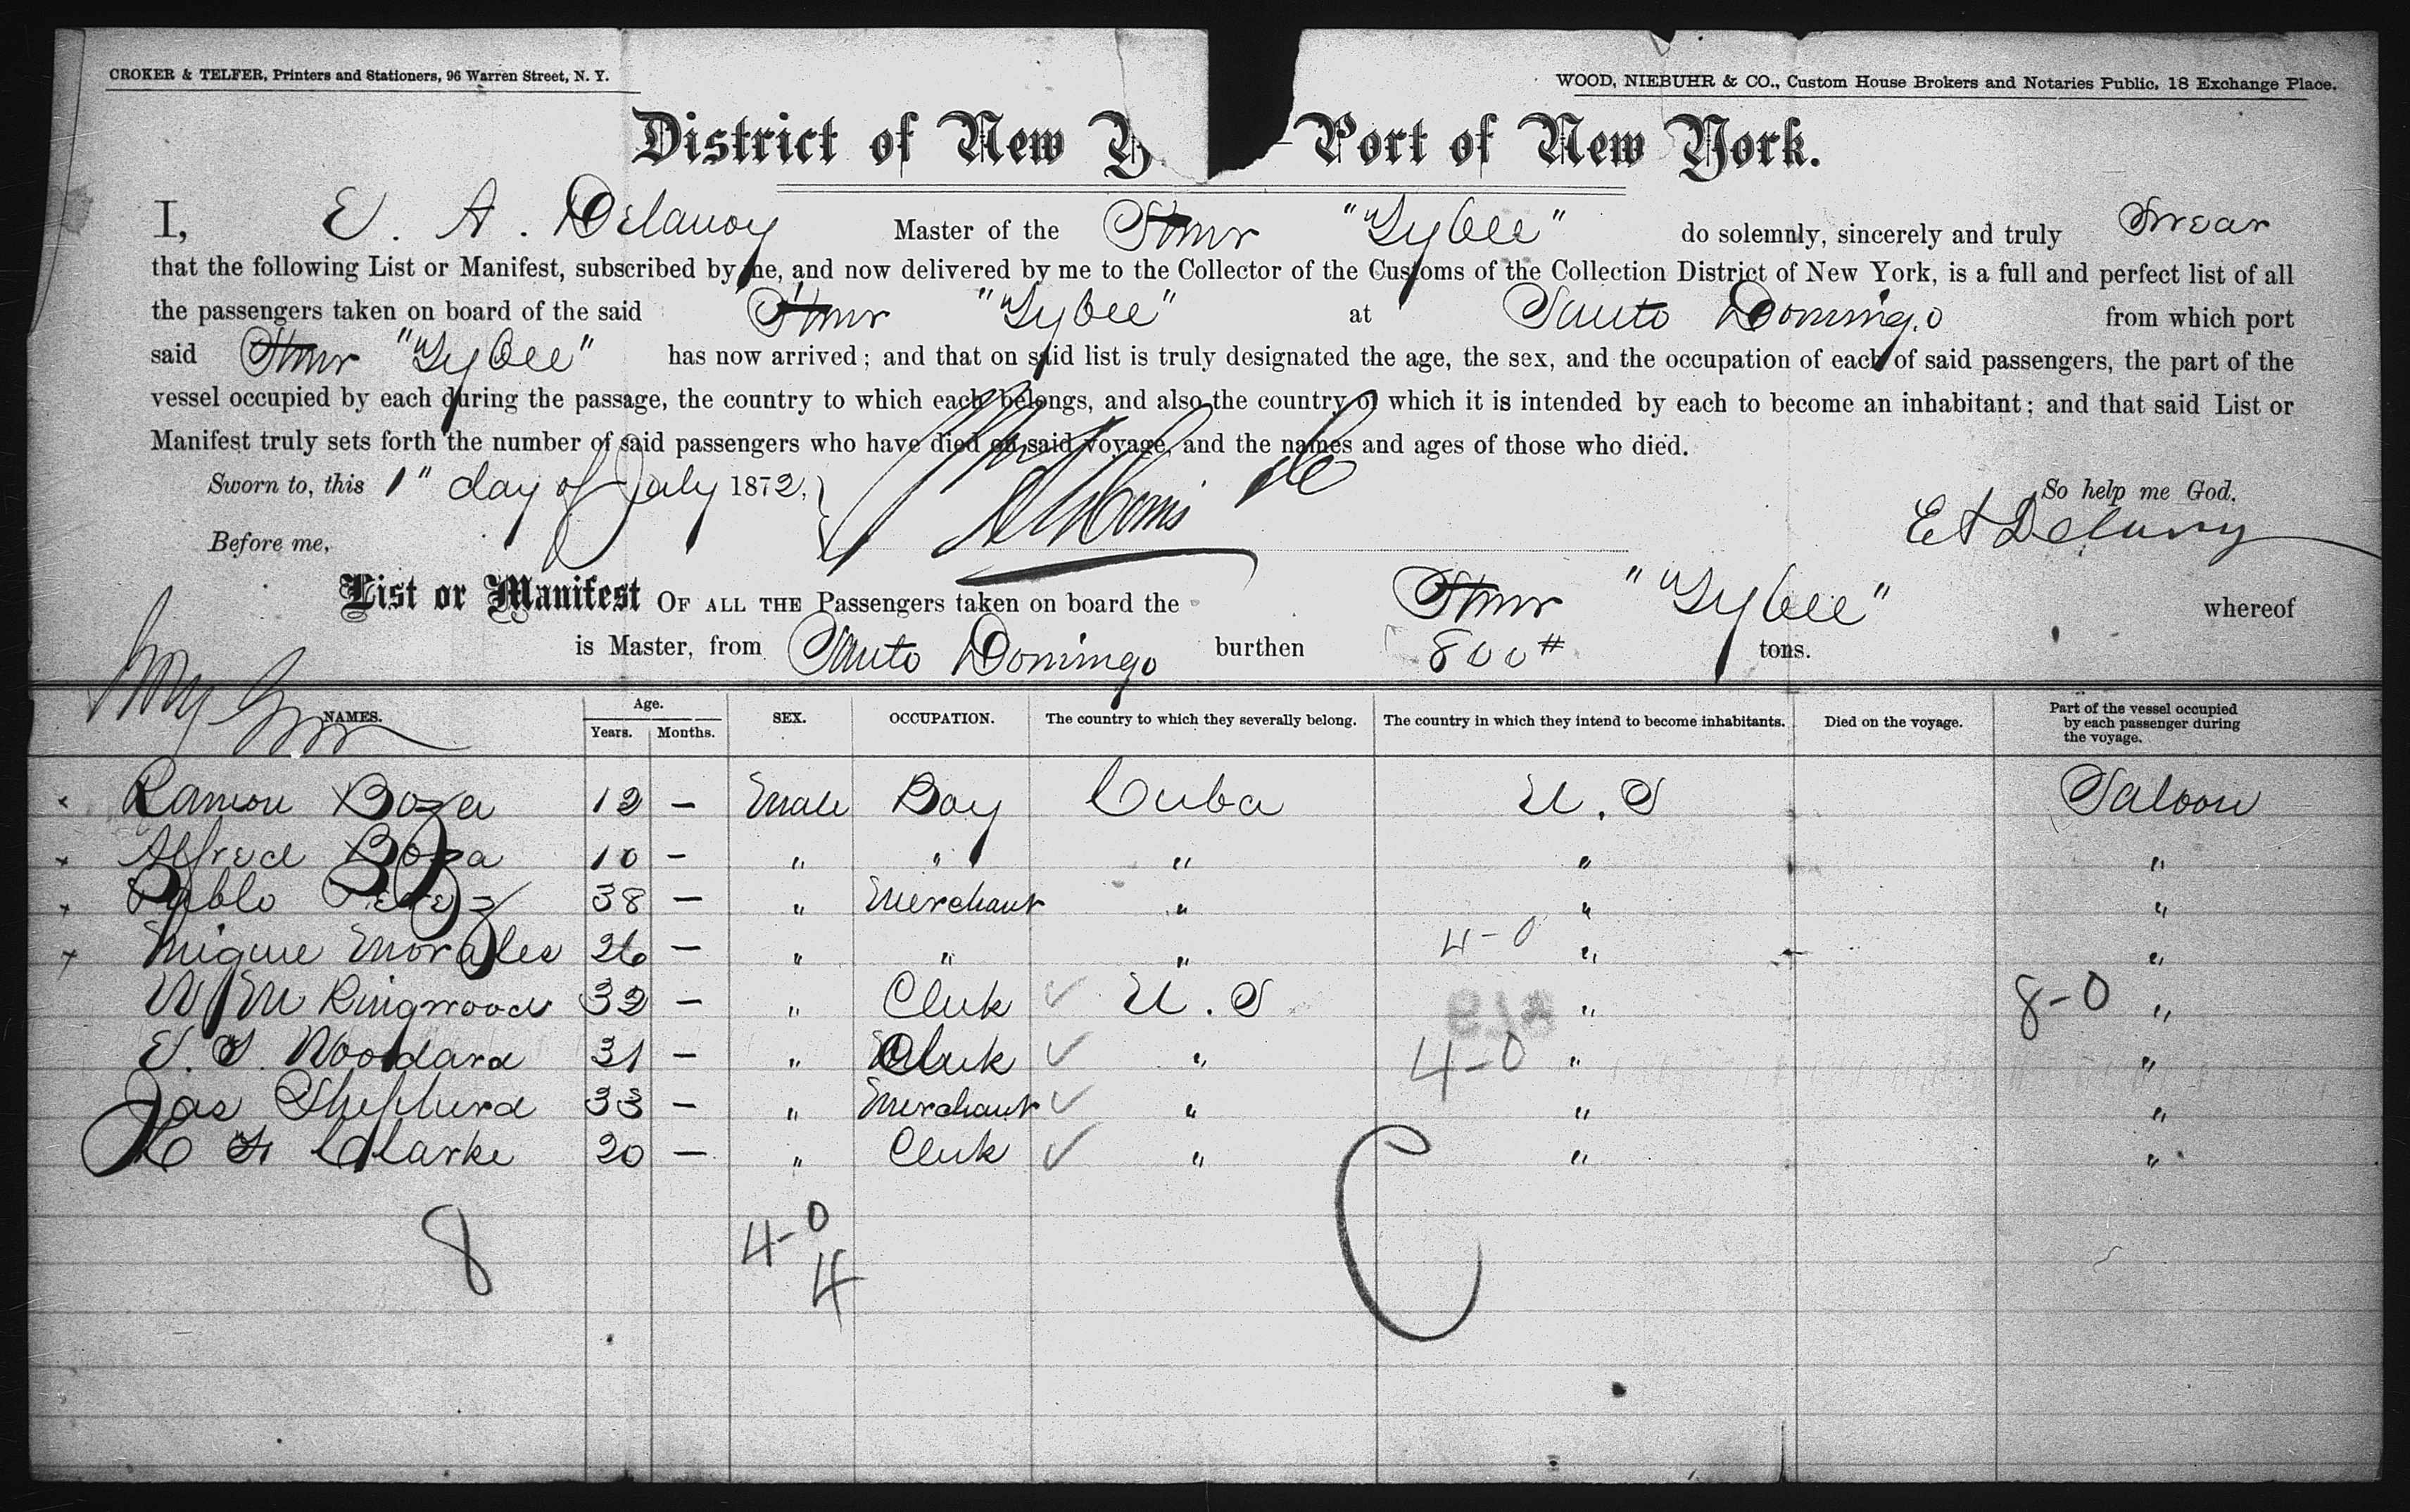 CROKER & TELFER, Printers and Stationers, 96 Warren Street, N. Y.
WOOD, NIEBUHR & CO., Custom House Brokers and Notaries Public, 18 Exchange Place.
District of New Y Port of New York.
I, E. A. Delanoy Master of the Stmr "Tybee" do solemnly, sincerely and truly Swear
that the following List or Manifest, subscribed by me, and now delivered by me to the Collector of the Customs of the Collection District of New York, is a full and perfect list of all
the passengers taken on board of the said Stmr "Tybee" at Santo Domingo from which port
said Stmr "Tybee" has now arrived; and that on said list is truly designated the age, the sex, and the occupation of each of said passengers, the part of the
vessel occupied by each during the passage, the country to which each belongs, and also the country of which it is intended by each to become an inhabitant; and that said List or
Manifest truly sets forth the number of said passengers who have died on said voyage, and the names and ages of those who died.
Sworn to, this 1" day of July 1872, So help me God.
Before me, E A Delanoy
List or Manifest OF ALL THE Passengers taken on board the Stmr "Tybee" whereof
is Master, from Santo Domingo burthen 800 # tons.
NAMES. Age. Years. Months. SEX. OCCUPATION. The country to which they severally belong. The country in which they intend to become inhabitants. Died on the voyage. Part of the vessel occupied by each passenger during the voyage.
Ramon Boza 12 — Male Boy Cuba U. S Saloon
Alfred Boza 10 — " " " " "
Pablo Perez 38 — " Merchant " " "
Migue Morales 26 — " " " 4-0 " "
W M Ringwood 32 — " Clerk ✓ U. S " 8-0 "
E. S. Woodard 31 — " Clerk ✓ " 4-0 " "
Jas Shepherd 33 — " Merchant ✓ " " "
H F Clarke 20 — " Clerk ✓ " " "
8 4-0 C
4